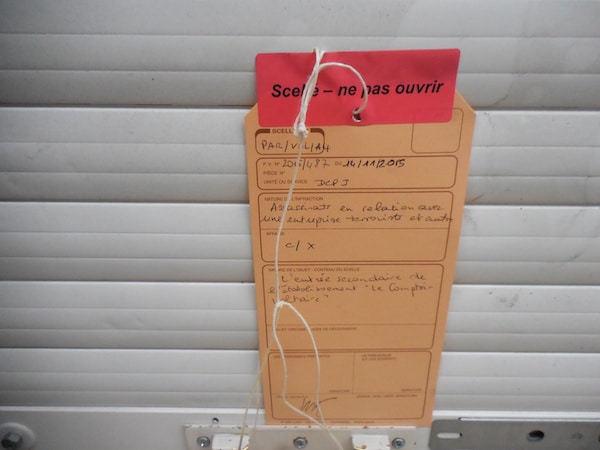 Scellé – ne pas ouvrir
SCELLÉ
PAR/VOL/A4
P.V. N° 2015/487 DU 14/11/2015
PIÈCE N°
UNITÉ OU SERVICE DCPJ
NATURE DE L'INFRACTION
Assassinats en relation avec
une entreprise terroriste et autres
AFFAIRE
c/ X
NATURE DE L'OBJET - CONTENU DU SCELLÉ
L'entrée secondaire de
l'établissement "Le Comptoir
Voltaire"
SIGNATURE
SIGNATURE